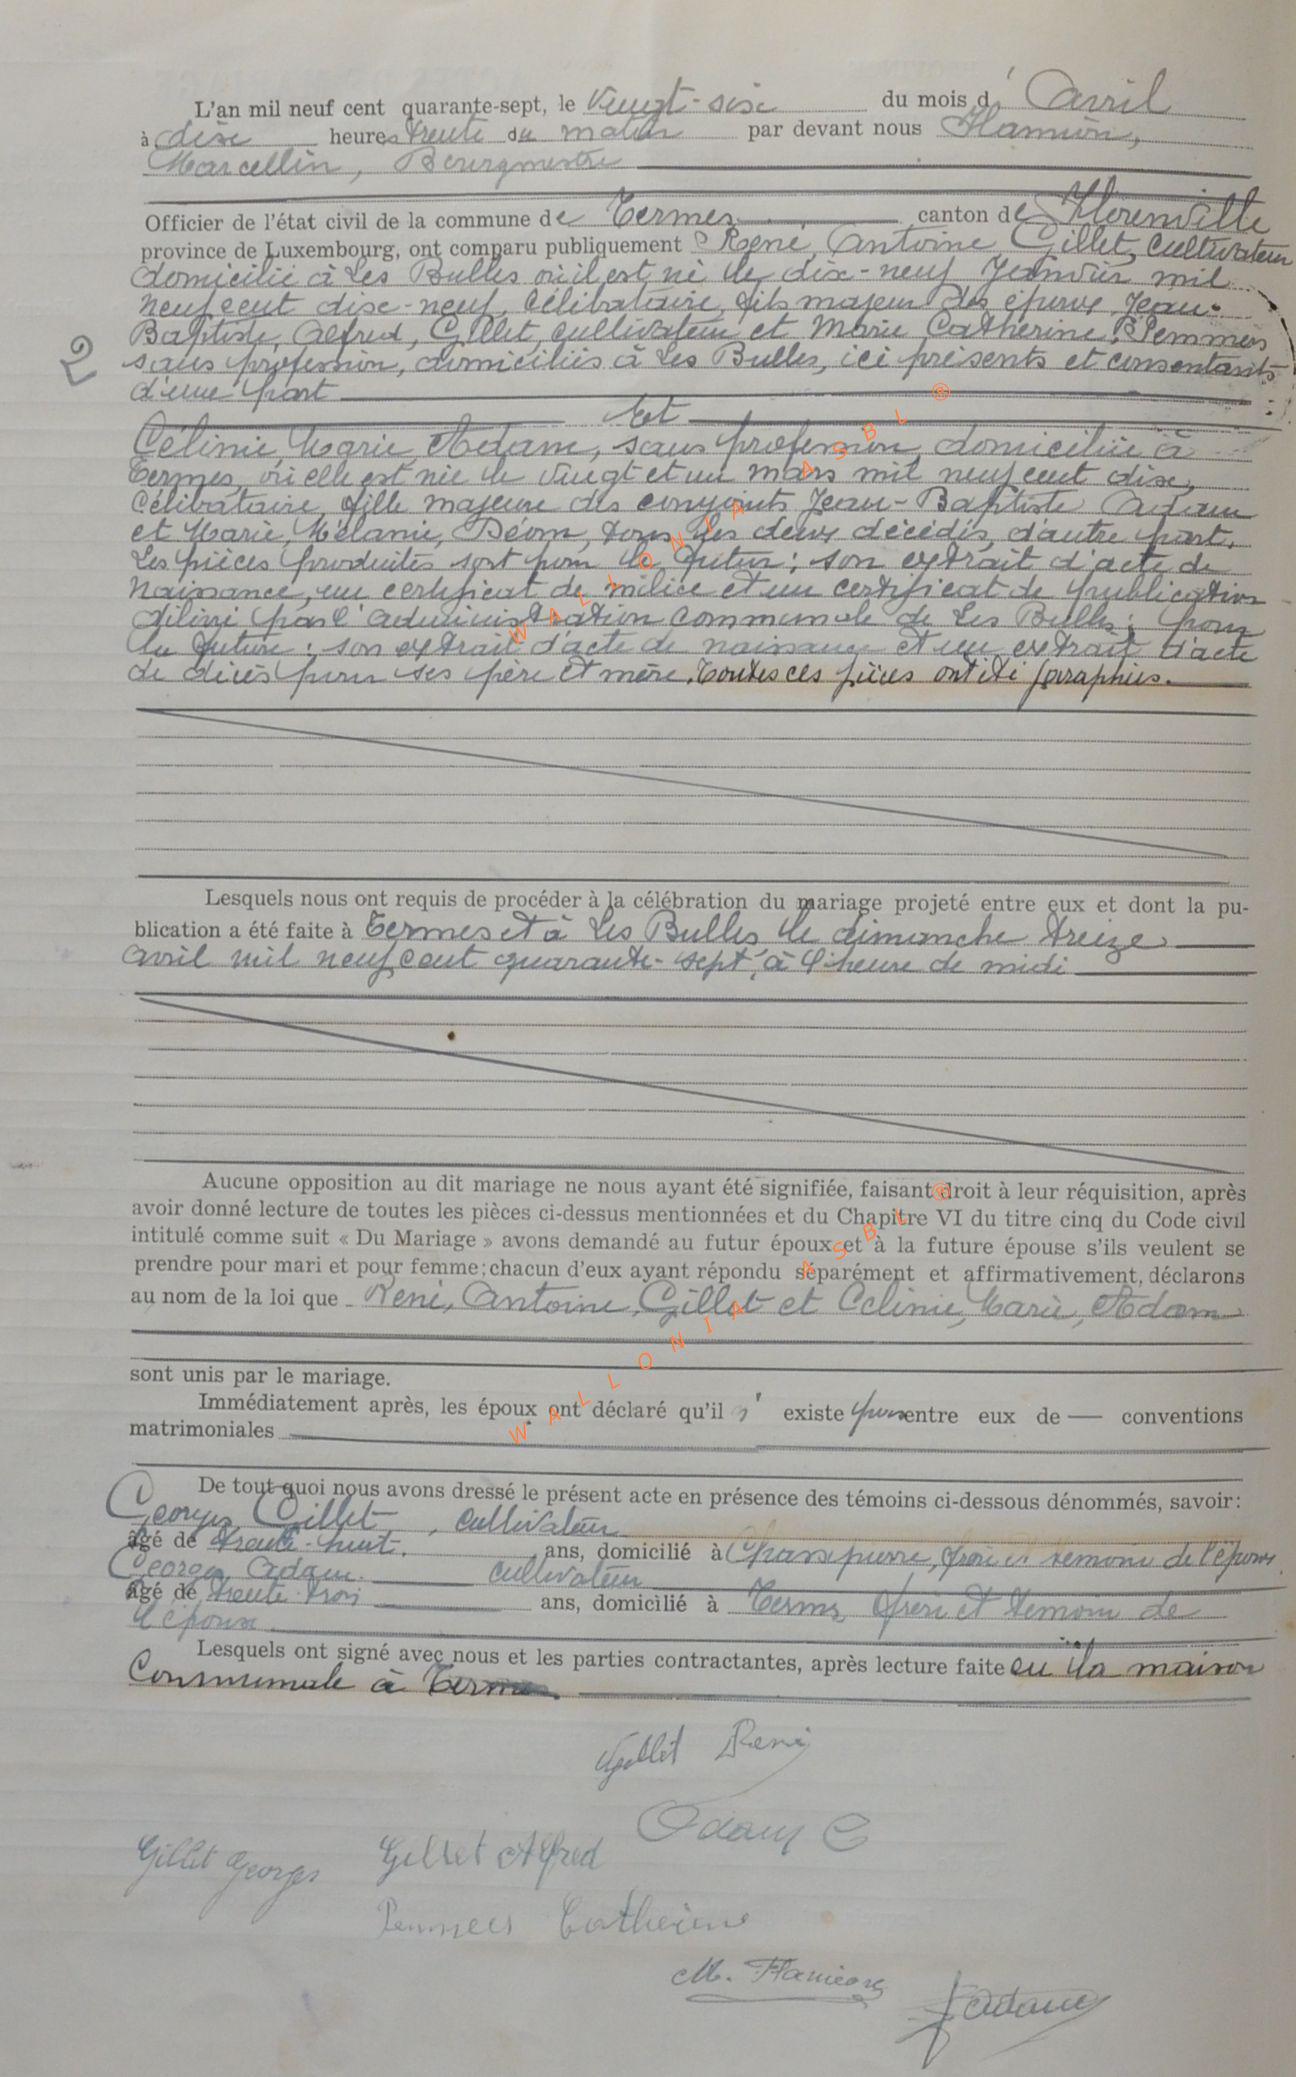 L'an mil neuf cent quarante-sept, le vingt-six du mois d'Avril
à dix heures trente du matin par devant nous Hanion,
Marcellin, Bourgmestre
Officier de l'état civil de la commune de Termes canton de Florenville
province de Luxembourg, ont comparu publiquement René, Antoine Gillet, cultivateur
domicilié à Les Bulles où il est né le dix-neuf Janvier mil
neuf cent dix-neuf, célibataire, fils majeur des époux Jean-
Baptiste, Alfred, Gillet, cultivateur et Marie Catherine, Pemmers
sans profession, domiciliés à Les Bulles, ici présents et consentants
d'une part
2
Et
Célinie, Marie, Adam, sans profession, domiciliée à
Termes, où elle est née le vingt et un mars mil neuf cent dix,
célibataire, fille majeure des conjoints Jean-Baptiste Adam
et Marie, Mélanie, Déom, tous les deux décédés, d'autre part.
Les pièces produites sont pour le futur : son extrait d'acte de
naissance, un certificat de milice et un certificat de publication
délivré par l'administration communale de Les Bulles ; pour
la future : son extrait d'acte de naissance et un extrait d'acte
de décès pour ses père et mère. Toutes ces pièces ont été paraphées.
Lesquels nous ont requis de procéder à la célébration du mariage projeté entre eux et dont la pu-
blication a été faite à Termes et à Les Bulles le dimanche treize
avril mil neuf cent quarante-sept, à l'heure de midi
Aucune opposition au dit mariage ne nous ayant été signifiée, faisant droit à leur réquisition, après
avoir donné lecture de toutes les pièces ci-dessus mentionnées et du Chapitre VI du titre cinq du Code civil
intitulé comme suit « Du Mariage » avons demandé au futur époux et à la future épouse s'ils veulent se
prendre pour mari et pour femme ; chacun d'eux ayant répondu séparément et affirmativement, déclarons
au nom de la loi que René, Antoine, Gillet et Célinie, Marie, Adam
sont unis par le mariage.
Immédiatement après, les époux ont déclaré qu'il n' existe pas entre eux de conventions
matrimoniales
De tout quoi nous avons dressé le présent acte en présence des témoins ci-dessous dénommés, savoir :
Georges Gillet, cultivateur
âgé de trente-huit. ans, domicilié à Chassepierre, frère et témoin de l'époux.
Georges Adam. cultivateur
âgé de trente-trois ans, domicilié à Termes frère et témoin de
l'épouse
Lesquels ont signé avec nous et les parties contractantes, après lecture faite en la maison
Communale à Termes
Gillet René
Adam C
Gillet Georges Gillet Alfred
Pemmers Catherine
M. Hanion
Adam
WALLONIA ASBL ®
WALLONIA ASBL ®